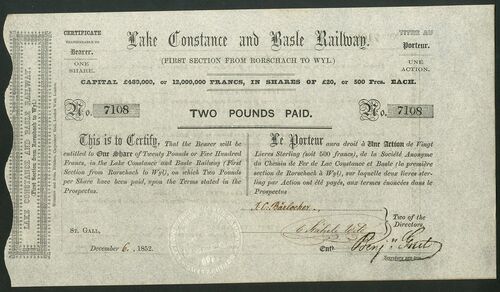 CERTIFICATE
TRANSFERABLE TO
Bearer.
ONE
SHARE.
Lake Constance and Basle Railway.
(FIRST SECTION FROM RORSCHACH TO WYL.)
TITRE AU
Porteur.
UNE
ACTION.
CAPITAL £480,000, or 12,000,000 FRANCS, IN SHARES OF £20, or 500 Frcs. EACH.
No. 7108
TWO POUNDS PAID.
No. 7108
This is to Certify, That the Bearer will be
entitled to One Share of Twenty Pounds or Five Hundred
Francs, in the Lake Constance and Basle Railway (First
Section from Rorschach to Wyl), on which Two Pounds
per Share have been paid, upon the Terms stated in the
Prospectus.
Le Porteur aura droit à Une Action de Vingt
Livres Sterling (soit 500 francs), de la Société Anonyme
du Chemin de Fer de Lac Constance et Basle (la première
section de Rorschach à Wyl), sur laquelle deux livres sterling
par Action ont été payés, aux termes énoncées dans le
Prospectus.
LAKE CONSTANCE AND BASLE RAILWAY.
(First Section from Rorschach to Wyl.)
St. Gall,
December 6, 1852.
Two of the
Directors.
Ent.